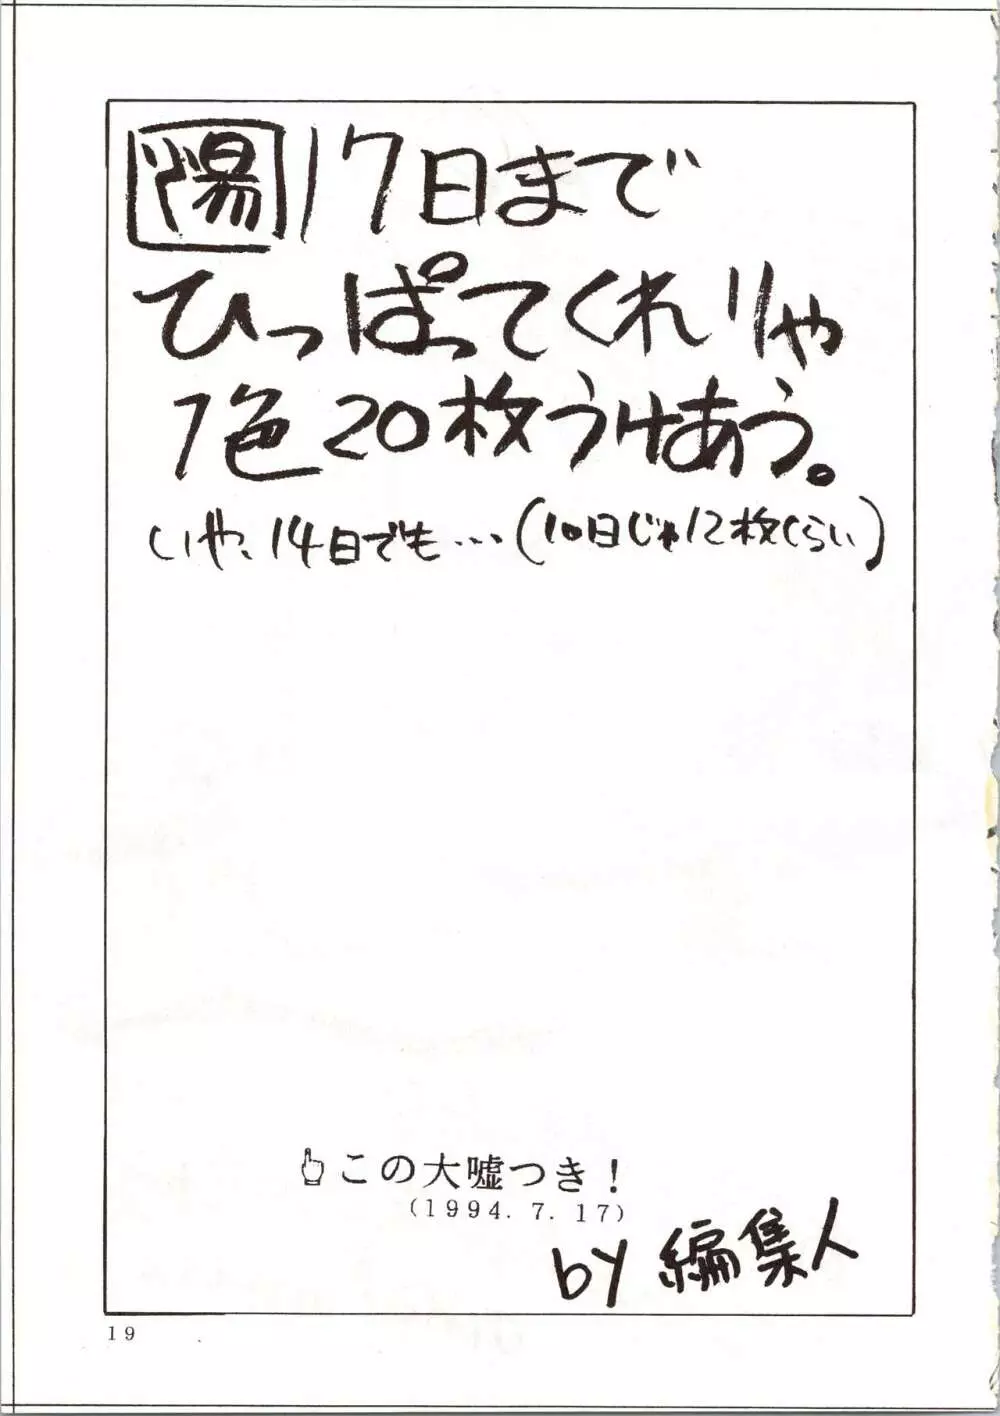 陽 17日まで
ひっぱってくれりゃ
1色20枚うけあう。
いや、14日でも…(10日じゃ12枚くらい)
👆この大嘘つき！
(1994.7.17)
by 編集人
19